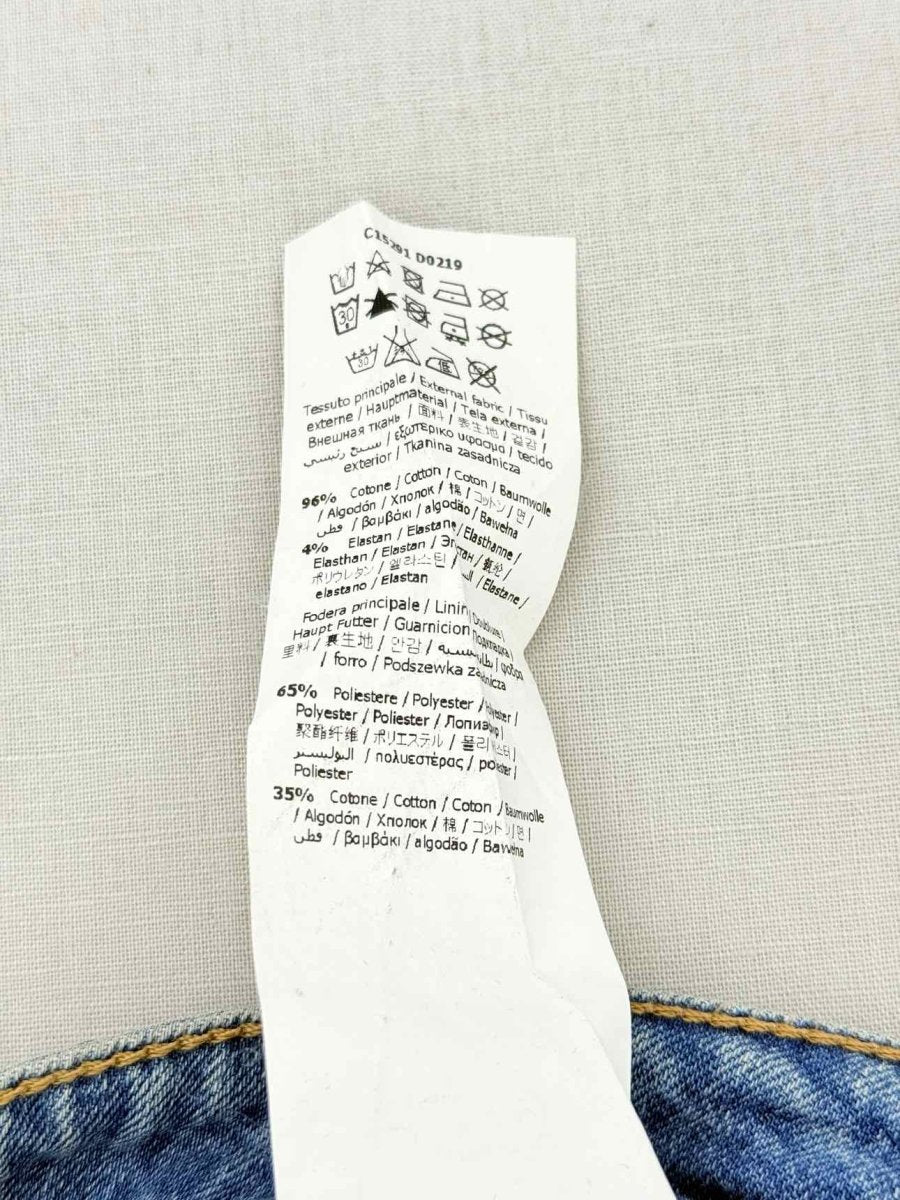 C15291 D0219
30
30
Tessuto principale / External fabric / Tissu
externe / Hauptmaterial / Tela externa /
Внешная ткань / 面料 / 表生地 / 겉감 /
نسيج رئيسي / εξωτερικο υφασμα / tecido
exterior / Tkanina zasadnicza
96% Cotone / Cotton / Coton / Baumwolle
/ Algodón / Хполок / 棉 / コットン / 면 /
قطن / βαμβάκι / algodão / Bawełna
4% Elastan / Elastane / Elasthanne /
Elasthan / Elastan / /
ポリウレタン / 엘라스틴 / / Elastane /
elastano / Elastan
Fodera principale / Lining / Doublure /
Haupt Futter / Guarnicion Подкладка /
里料 / 裏生地 / 안감 / / φοδρα
/ forro / Podszewka zasadnicza
65% Poliestere / Polyester / Polyester /
Polyester / Poliester / /
聚酯纤维 / ポリエステル / 폴리에스터 /
البوليستير / πολυεστέρας / poliester /
Poliester
35% Cotone / Cotton / Coton / Baumwolle
/ Algodón / Хполок / 棉 / コットン / 면 /
قطن / βαμβάκι / algodão / Bawełna